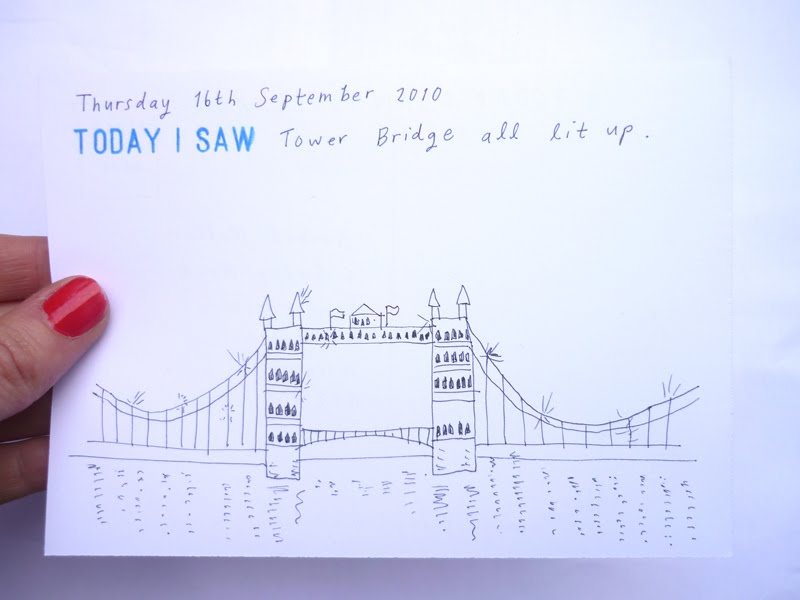 Thursday 16th September 2010
TODAY I SAW Tower Bridge all lit up.